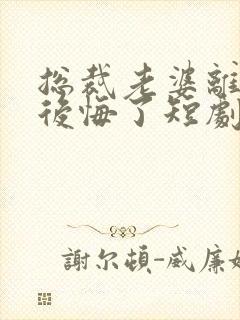 總裁老婆離
後悔了短劇
謝尔頓-威廉姆